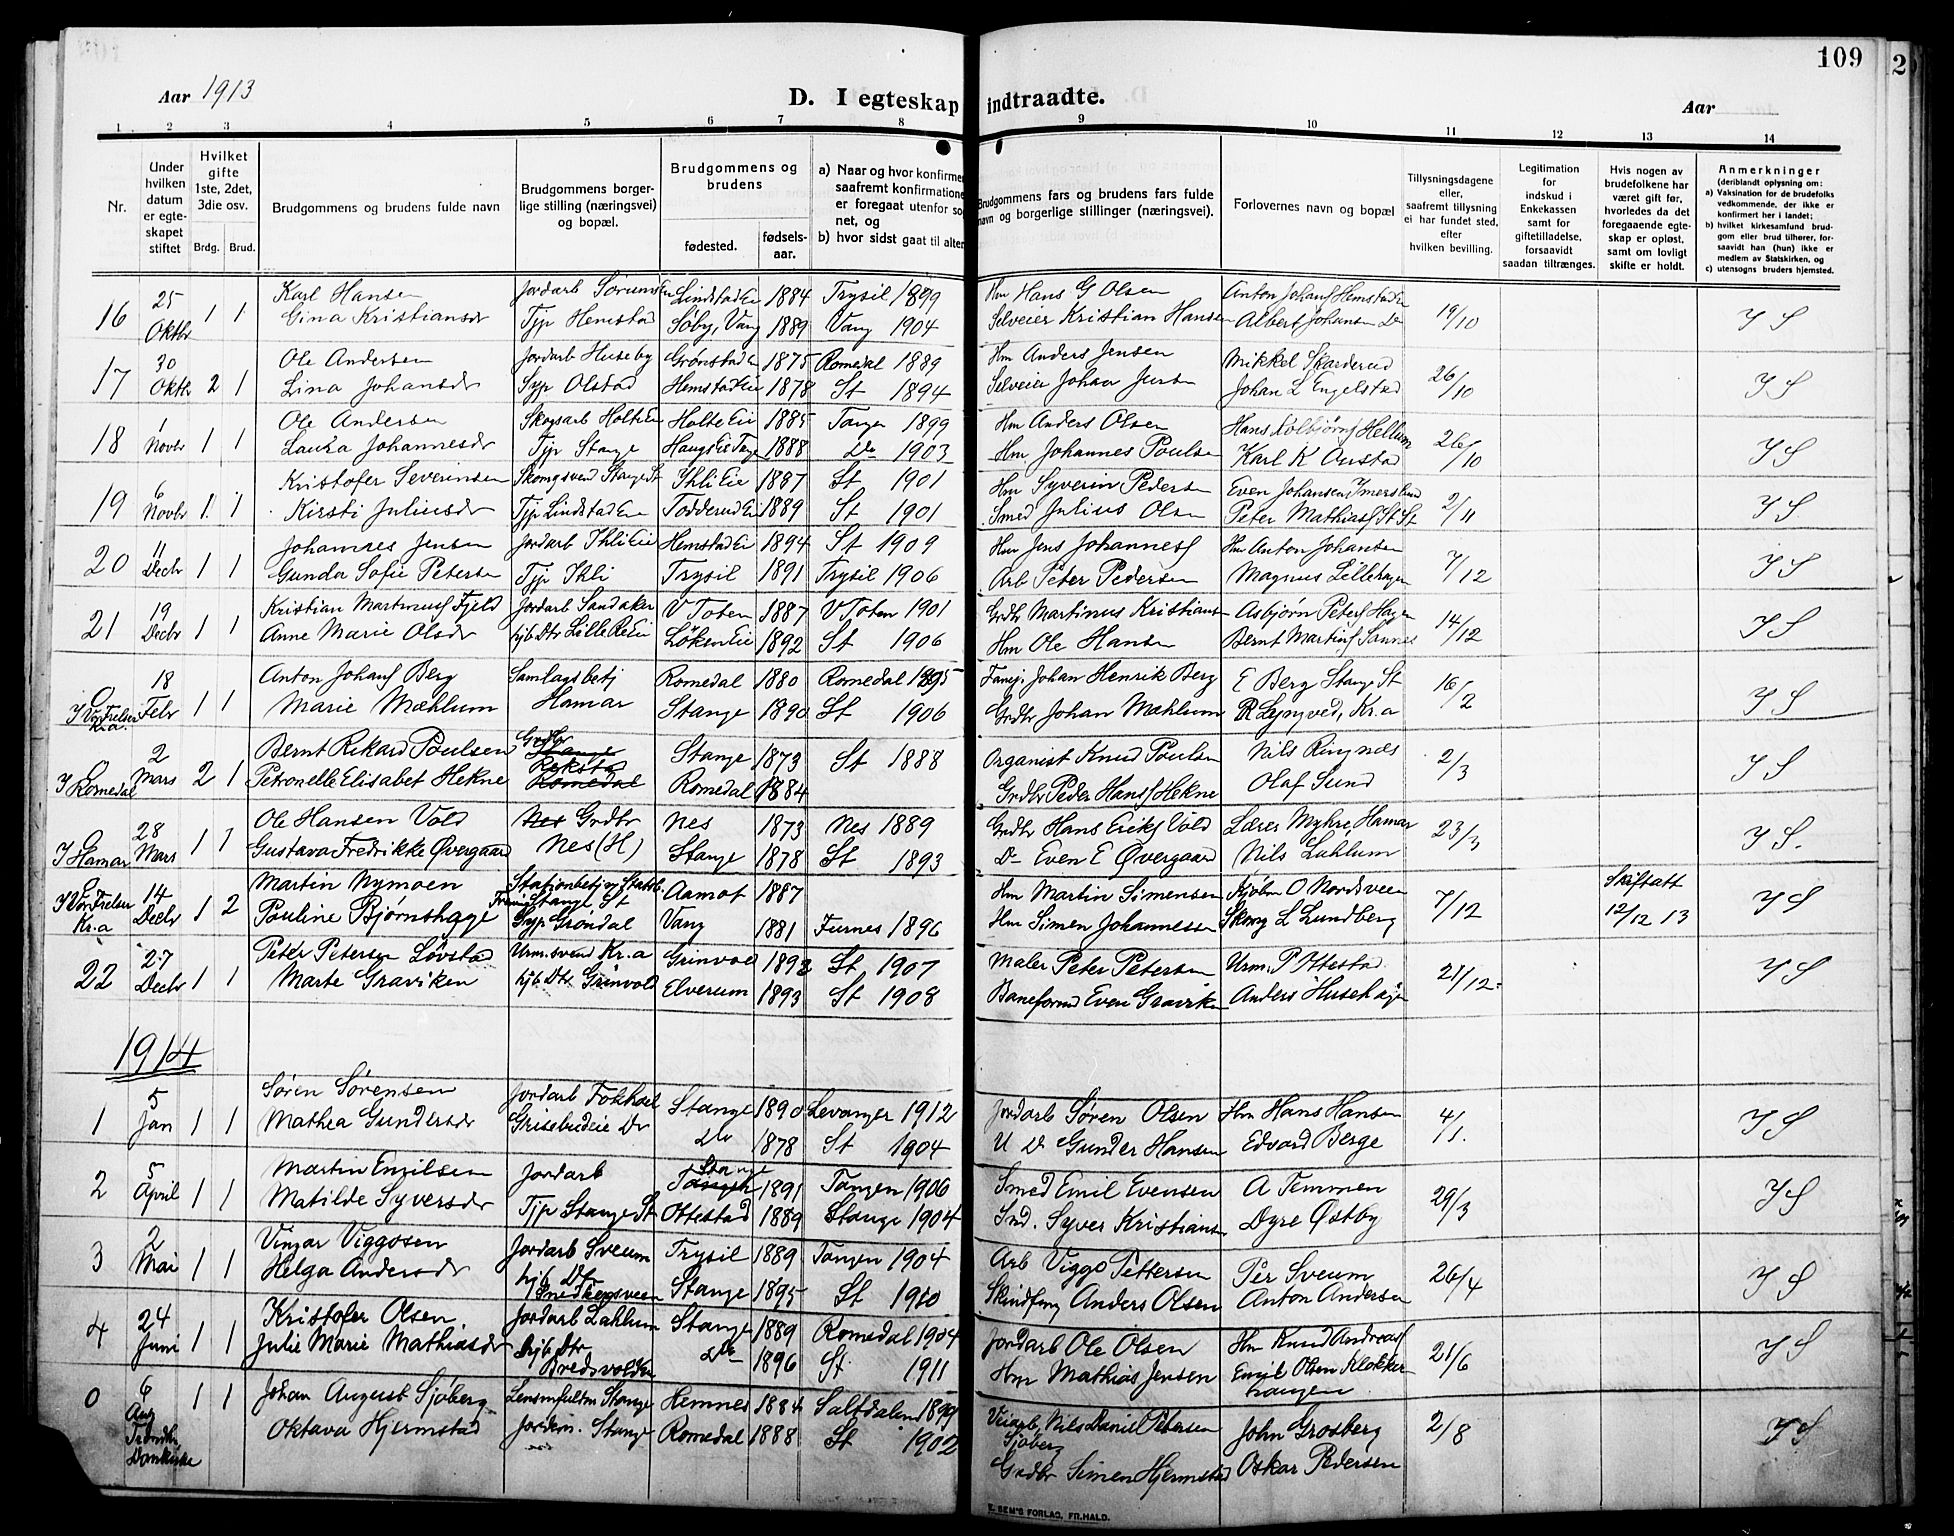 109
2
Aar 1913
D. I egteskap indtraadte.
Aar
1 2 3 4 5 6 7 8 9 10 11 12 13 14
Nr.
Under hvilken datum er egteskapet stiftet
Hvilket gifte 1ste, 2det, 3die osv.
Brdg. Brud.
Brudgommens og brudens fulde navn
Brudgommens borgerlige stilling (næringsvei) og bopæl.
Brudgommens og brudens
fødested.
fødselsaar.
a) Naar og hvor konfirmer
saafremt konfirmatione
er foregaat utenfor so
net, og
b) hvor sidst gaat til alter
Brudgommens fars og brudens fars fulde navn og borgerlige stillinger (næringsvei).
Forlovernes navn og bopæl
Tillysningsdagene eller, saafremt tillysning ei har fundet sted, efter hvilken bevilling.
Legitimation for indskud i Enkekassen samt for giftetilladelse, forsaavidt saadan tiltrænges.
Hvis nogen av brudefolkene har været gift før, hvorledes da det foregaaende egteskap er opløst, samt om lovligt skifte er holdt.
Anmerkninger
(deriblandt oplysning om:
a) Vaksination for de brudefolks vedkommende, der ikke er konfirmert her i landet;
b) hvilket kirkesamfund brudgom eller brud tilhører, forsaavidt han (hun) ikke er medlem av Statskirken, og
c) utensogns bruders hjemsted.
16 25 Oktbr 1 1 Karl Hansen Jordarb Sørum Eie Lindstad Ei 1884 Trysil 1899 Hm Hans G Olsen Anton Johans Hemstad Ei 19/10 I S
Gina Kristiansdr Tjp Hemstad Søby, Vang 1889 Vang 1904 Selveier Kristian Hansen Albert Johansen Do
17 30 Oktbr 2 1 Ole Andersen Jordarb Huseby Grønstad Ei 1875 Romedal 1889 Hm Anders Jensen Mikkel Skarderud 26/10 I S
Lina Johansdr Syp Olstad Hemstad Eie 1878 St 1894 Selveier Johan Jensen Johan L Engelstad
18 1 Novbr 1 1 Ole Andersen Skogsarb Holte Ei Holte Eie 1885 Tangen 1899 Hm Anders Olsen Hans Kolbjørns Hellum 26/10 I S
Laura Johannesdr Tjp Stange 1888 Do 1903 Hm Johannes Poulsen Karl K Oustad
19 6 Novbr 1 1 Kristofer Severinsen Skomgsvend Stange St Ihli Eie 1887 St 1901 Hm Syverin Pedersen Even Johansen Ymerslund 2/11 I S
Kirsti Juliusdr Tjp Lindstad Eie Todderud Ei 1889 St 1901 Smed Julius Olsen Peter Mathias St St
20 11 Decbr 1 1 Johannes Jensen Jordarb Ihli Eie Hemstad Ei 1894 St 1909 Hm Jens Johannes Hm Anton Johansen 7/12 I S
Gunda Sofie Petersen Tjp Ihli Trysil 1891 Trysil 1906 Arb Peter Pedersen Magnus Lillehagen
21 19 Decbr 1 1 Kristian Martinus Fjeld Jordarb Sandaker V Toten 1887 V Toten 1901 Grdbr Martinus Kristiansen Asbjørn Peters Hagen 14/12 I S
Anne Marie Olsdr hjb Dtr Lille Re Ei Løken Eie 1892 St 1906 Hm Ole Hansen Bernt Martins Sannes
0 I Vor Frelser Kr.a. 18 Febr 1 1 Anton Johans Berg Samlagsbetj Romedal 1880 Romedal 1895 Johan Henrik Berg E Berg Stange St 16/2 I S
Marie Mæhlum Hamar Stange 1890 St 1906 Grdbr Johan Mæhlum Kr.a
0 I Romedal 2 Mars 2 1 Bernt Rikard Poulsen Grdbr Stange 1873 St 1888 Organist Knud Poulsen Nils Ringnæs 2/3 I S
Petronelle Elisabet Hekne Romedal Romedal 1884 Grdbr Peder Hans Hekne Olaf Sund
0 I Hamar 28 Mars 1 1 Ole Hansen Vold Nes Grdbr Nes 1873 Nes 1889 Grdbr Hans Eriks Vold Lærer Myhre, Hamar 23/3 I S.
Gustava Fredrikke Øvergaard Nes (H) Stange 1878 St 1893 Do Even E Øvergaard Nils Lahlum
0 I Vor Frelser Kr.a 14 Decbr 1 2 Martin Nymoen Stationbetj Stange St Aamot 1887 Hm Martin Simensen Kjøbm O Nordsveen 7/12 Skiftatt 12/12 13 I S
Pauline Bjørnshage Syp Grøndal Vang 1881 Furnes 1896 Hm Simen Johannessen Skomg L Lundberg
22 27 Decbr 1 1 Peter Petersen Løvstad Urm.svend Kr.a Grinvold 1892 St 1907 Maler Peter Petersen Urm. P Ottestad 21/12 I S
Marte Graviken hjb Dtr Grinvold Elverum 1893 St 1908 Baneformd Even Graviken Anders Husehagen
1914
1 5 Jan 1 1 Søren Sørensen Jordarb Fokhol Stange 1890 Levanger 1912 Jordarb Søren Olsen Hm Hans Hansen 4/1. I S
Mathea Gundersdr Grisebudeie Do Do 1878 St 1904 U Do Gunder Hansen Edvard Berge
2 5 April 1 1 Martin Emilsen Jordarb Stange Tangen 1891 Tangen 1906 Smed Emil Evensen A Temmen 29/3 I S
Matilde Syversdr Tjp Stange St Ottestad 1889 Stange 1904 Ind. Syver Kristiansen Dyre Østby
3 2 Mai 1 1 Vinjar Viggosen Jordarb Sveum Trysil 1889 Tangen 1904 Arb Viggo Pettersen Per Sveum 26/4 I S
Helga Andersdr hjb Dtr Snedkersveen Stange 1895 St 1910 Skindfmg Anders Olsen Anton Andersen
4 24 Juni 1 1 Kristofer Olsen Jordarb Lahlum Stange 1889 Romedal 1904 Jordarb Ole Olsen Hm Knud Andreas 21/6 I S
Julie Marie Mathiasdr hjb Dtr Bredsvolden Do 1896 St. 1911 Hm Mathias Jensen Emil Olsen Klokkerhaugen
0 6 Aug Trondhj Domkirke 1 1 Johan August Sjøberg Lensmfuldm Stange Hemnes 1884 Saltdalen 1899 Veiarb. Nils Daniel Petersen Sjøberg John Grosberg 2/8 I S
Oktava Hjermstad Jordem. Stange Romedal 1888 St 1902 Grdbr Simen Hjermstad Oskar Pedersen
E. SEM'S FORLAG, FR.HALD.